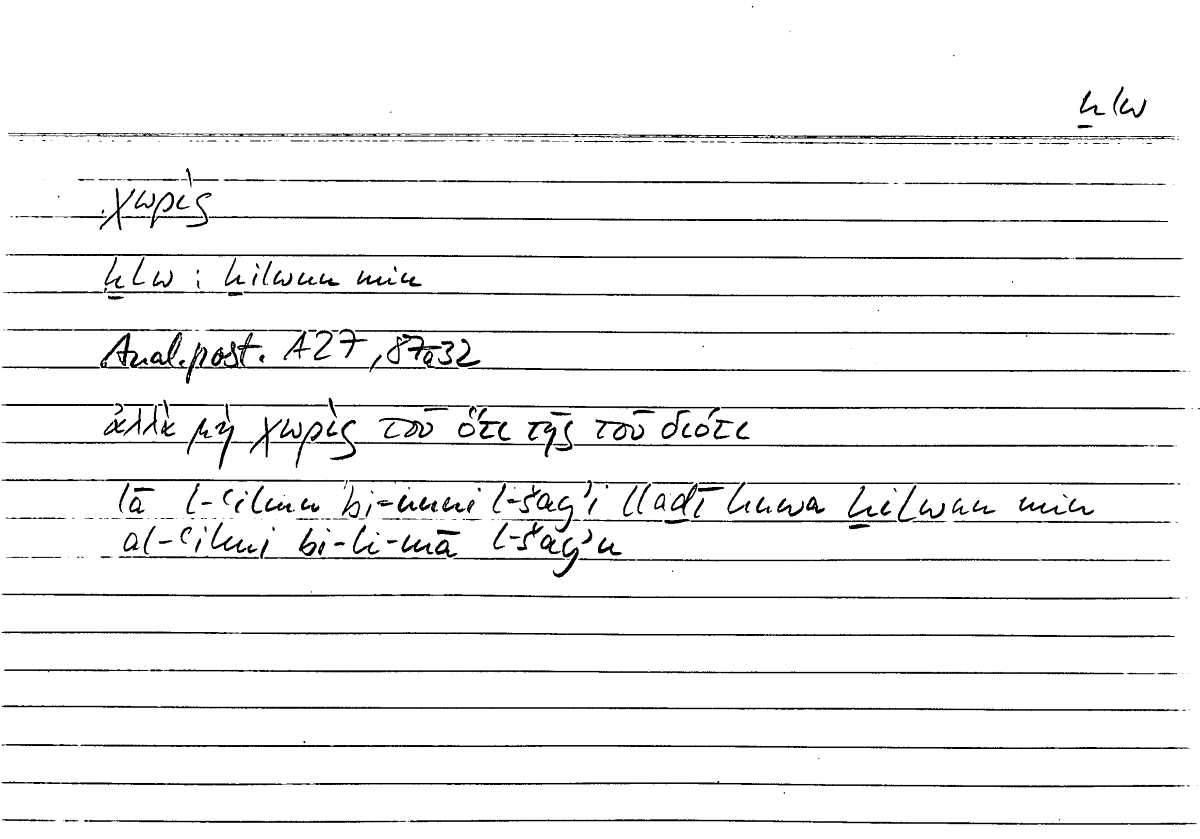 ḫlw
χωρὶς
ḫlw : ḫilwun min
Anal. post. A27, 87a32
ἀλλὰ μὴ χωρὶς τοῦ ὅτι τῆς τοῦ διότι
lā l-ʿilmu bi-anni l-šayʾi llaḏī huwa ḫilwun min
al-ʿilmi bi-li-mā l-šayʾu